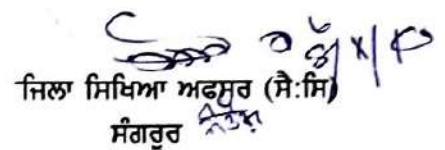 ਜਿਲਾ ਸਿਖਿਆ ਅਫਸਰ (ਸੈ:ਸਿ)
ਸੰਗਰੂਰ